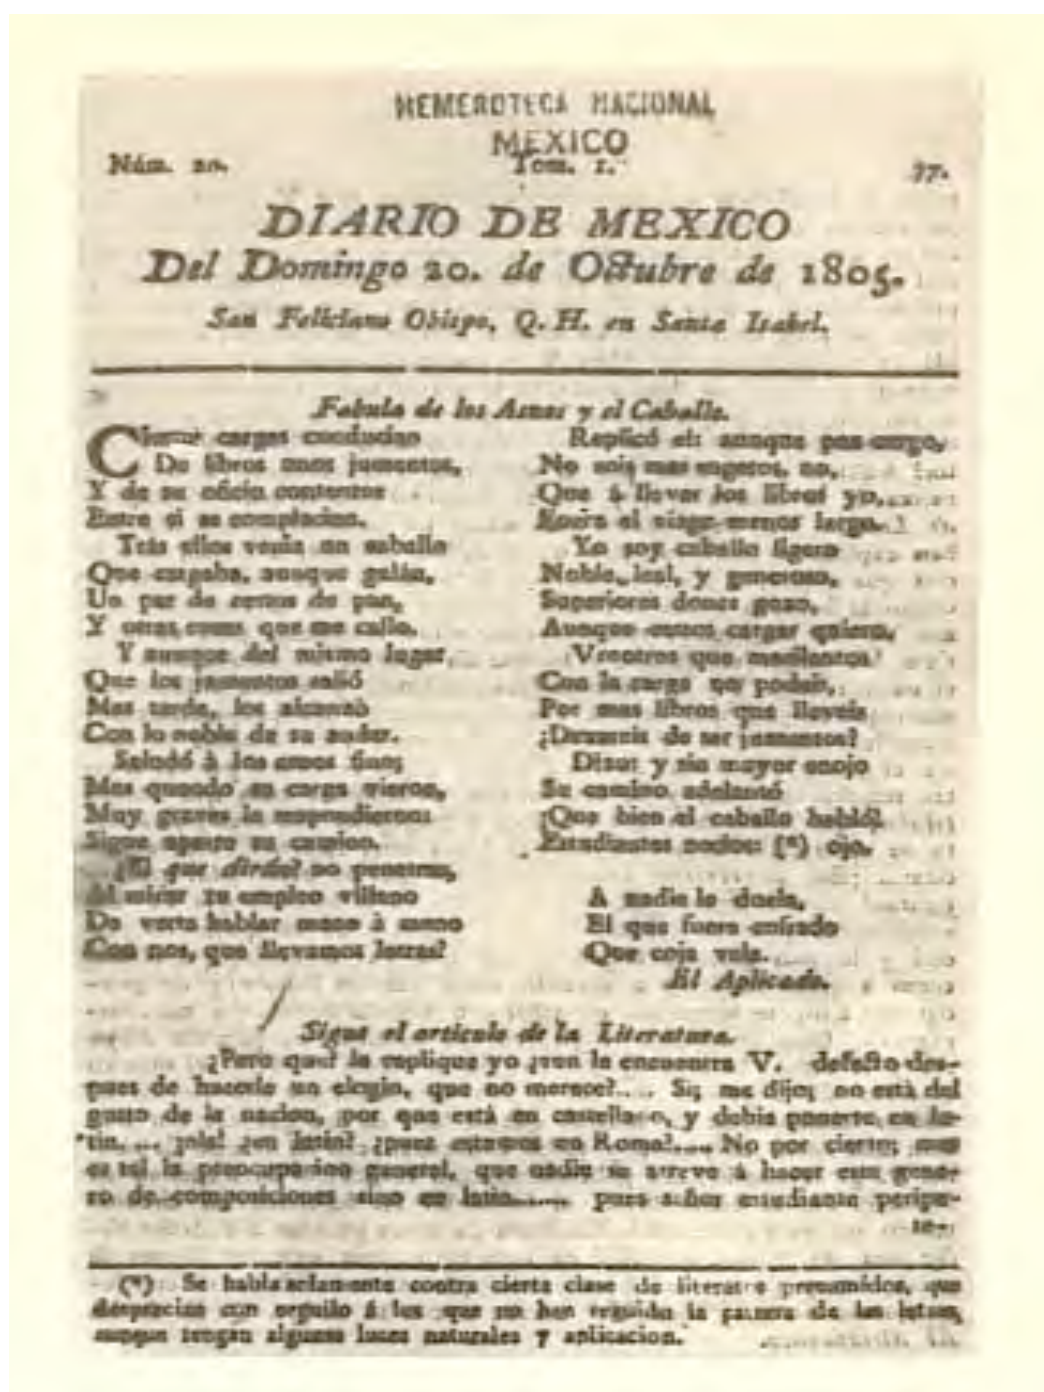 HEMEROTECA NACIONAL
MEXICO
Núm. 20. Tom. 1. 77.
DIARIO DE MEXICO
Del Domingo 20. de Octubre de 1805.
San Feliciano Obispo, Q. H. en Santa Isabel.
Fabula de los Asnos y el Caballo.
Ciertas cargas conducian
De libros unos jumentos,
Y de su oficio contentos
Entre sí se complacian.
Trás ellos venia un caballo
Que cargaba, aunque galán,
Un par de cestos de pan,
Y otras cosas que me callo.
Y aunque del mismo lugar,
Que los jumentos salió
Mas tarde, los alcanzó
Con lo noble de su andar.
Saludó à los asnos fino;
Mas quando su carga vieron,
Muy graves le respondieron:
Sigue aparte su camino.
¿El que dirán? no penetras,
Al mirar tu empleo villano
De verte hablar mano à mano
Con nos, que llevamos letras?
Replicó el: aunque pan cargo,
No sois mas sugetos, no,
Que á llevar los libros yo,
Fuera el viage menos largo.
Yo soy caballo ligero
Noble, leal, y generoso,
Superiores dones gozo,
Aunque cargar quiero.
Vosotros que
Con la carga no podeis,
Por mas libros que lleveis
¿Dexareis de ser jumentos?
Dixo: y sin mayor enojo
Su camino adelantó
¡Que bien el caballo habló!
Estudiantes necios: (*) ojo.
A nadie le duela,
El que fuere
Que coja vela.
El Aplicado.
Sigue el articulo de la Literatura.
¿Pero que? le replique yo ¿aun le encuentra V. defecto des-
pues de hacerle un elogio, que no merece?.... Si; me dijo; no está del
gusto de la nacion, por que está en castellano, y debia ponerse en la-
tin.... ¡ola! ¿en latin? ¿pues estamos en Roma?.... No por cierto; mas
es tal la preocupacion general, que nadie se atreve á hacer este gene-
ro de composiciones sino en latin...... pues señor estudiante peripa-
te-
(*) Se habla solamente contra cierta clase de literatos presumidos, que
desprecian con orgullo á los que no han seguido la carrera de las letras,
aunque tengan algunas luces naturales y aplicacion.